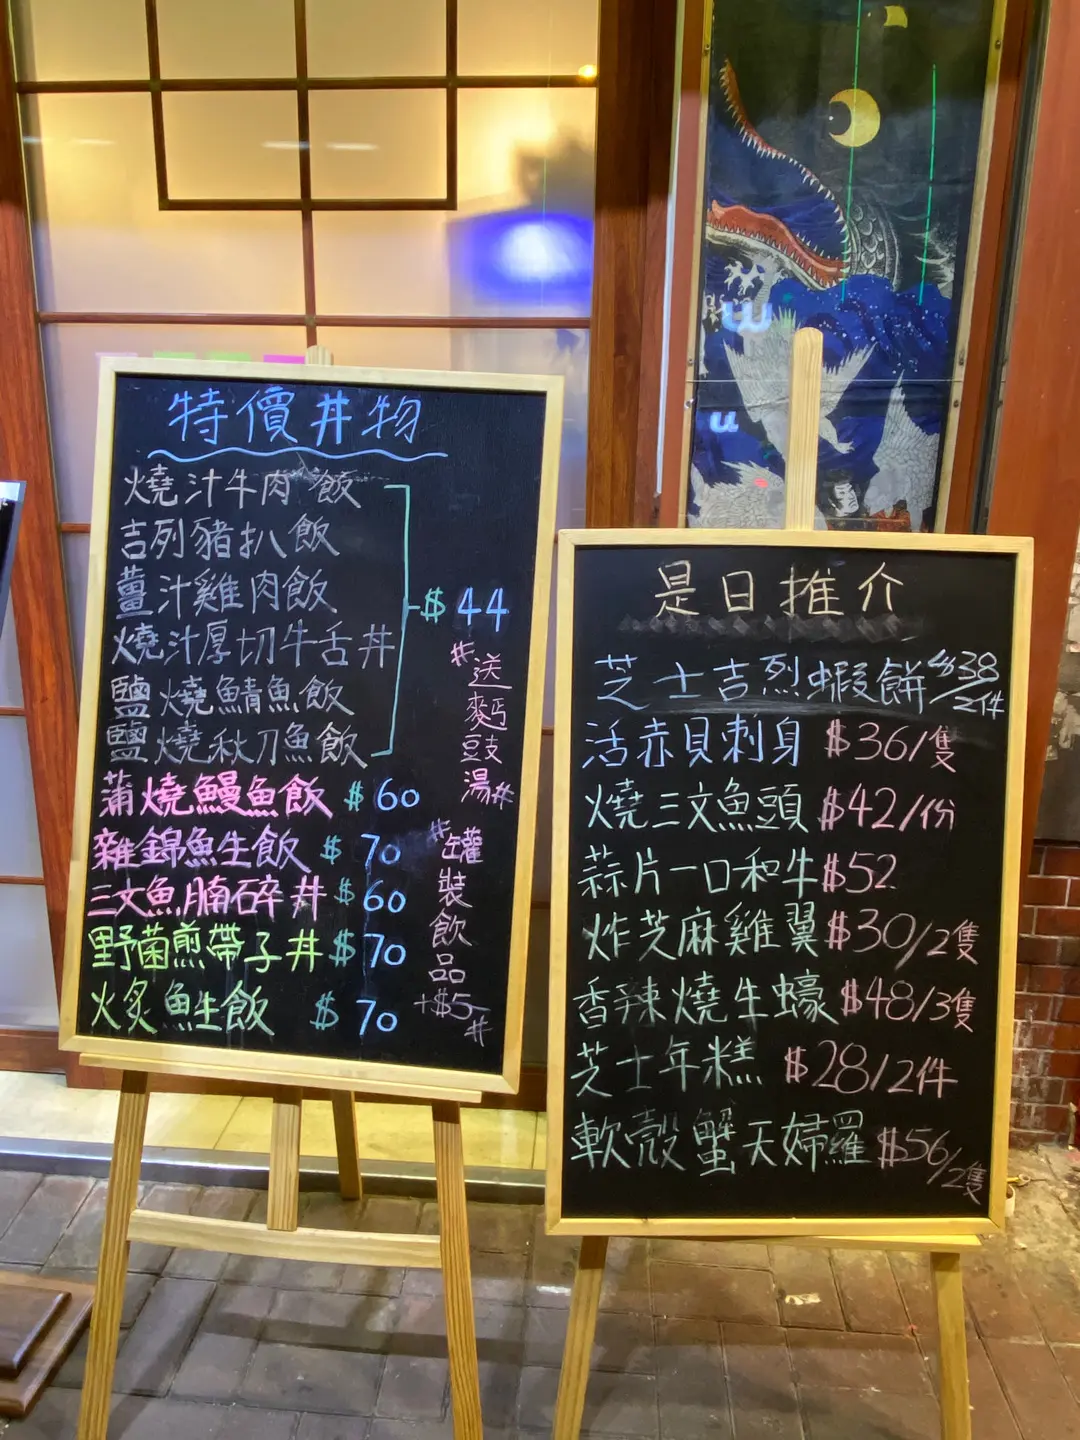 特價丼物
燒汁牛肉飯
吉列豬扒飯
薑汁雞肉飯
燒汁厚切牛舌丼
鹽燒鯖魚飯
鹽燒秋刀魚飯
$44
#送麵豉湯#
蒲燒鰻魚飯 $60
雜錦魚生飯 $70
三文魚腩碎丼 $60
野菌煎帶子丼 $70
火炙魚生飯 $70
#罐裝飲品+$5#
是日推介
芝士吉烈蝦餅 $38/2件
活赤貝刺身 $36/隻
燒三文魚頭 $42/份
蒜片一口和牛 $52
炸芝麻雞翼 $30/2隻
香辣燒生蠔 $48/3隻
芝士年糕 $28/2件
軟殼蟹天婦羅 $56/2隻
u
u